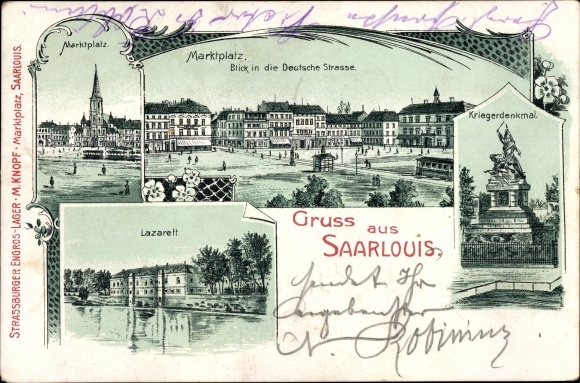 Marktplatz.
Marktplatz,
Blick in die Deutsche Strasse.
Kriegerdenkmal.
Lazarett
Gruss aus
SAARLOUIS.
sendet Ihr
ergebenster
N.
STRASSBURGER ENGROS-LAGER · M. KNOPF · Marktplatz, SAARLOUIS.